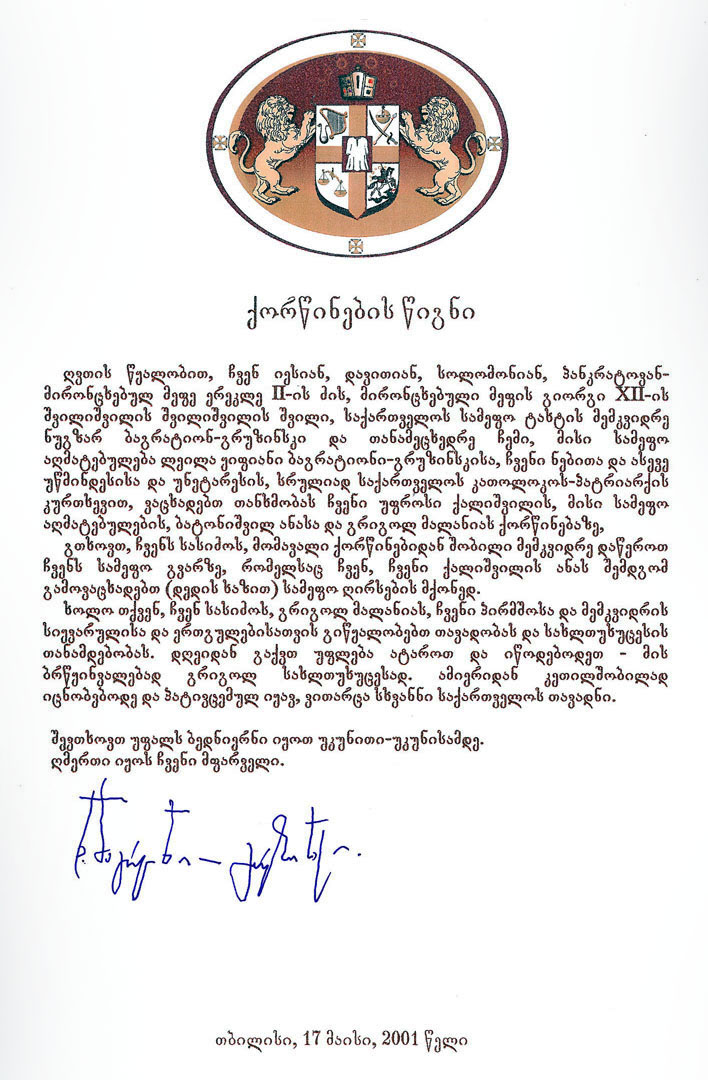 ქორწინების წიგნი
ღვთის წყალობით, ჩვენ იესიან, დავითიან, სოლომონიან, პანკრატოვან-
მირონცხებულ მეფე ერეკლე II-ის მის, მირონცხებული მეფის გიორგი XII-ის
შვილიშვილის შვილიშვილის შვილი, საქართველოს სამეფო ტახტის მემკვიდრე
ნუგზარ ბაგრატიონ-გრუზინსკი და თანამეცხედრე ჩემი, მისი სამეფო
აღმატებულება ლეილა ყიფიანი ბაგრატიონი-გრუზინსკისა, ჩვენი ნებითა და ასევე
უწმინდესისა და უნეტარესის, სრულიად საქართველოს კათოლოკოს-პატრიარქის
კურთხევით, ვაცხადებთ თანხმობას ჩვენი უფროსი ქალიშვილის, მისი სამეფო
აღმატებულების, ბატონიშვილ ანასა და გრიგოლ მალანიას ქორწინებაზე,
გთხოვთ, ჩვენს სასიძოს, მომავალი ქორწინებიდან შობილი მემკვიდრე დაწეროთ
ჩვენს სამეფო გვარზე, რომელსაც ჩვენ, ჩვენი ქალიშვილის ანას შემდგომ
გამოვაცხადებთ (დედის ხაზით) სამეფო ღირსების მქონედ.
ხოლო თქვენ, ჩვენ სასიძოს, გრიგოლ მალანიას, ჩვენი პირმშოსა და მემკვიდრის
სიყვარულისა და ერთგულებისათვის გიწყალობებთ თავადობას და სახლთუხუცესის
თანამდებობას. დღეიდან გაქვთ უფლება ატაროთ და იწოდებოდეთ - მის
ბრწყინვალებად გრიგოლ სახლთუხუცესად. ამიერიდან კეთილშობილად
იცნობებოდე და პატივცემულ იყავ, ვითარცა სხვანნი საქართველოს თავადნი.
შევთხოვთ უფალს ბედნიერნი იყოთ უკუნითი-უკუნისამდე.
ღმერთი იყოს ჩვენი მფარველი.
თბილისი, 17 მაისი, 2001 წელი